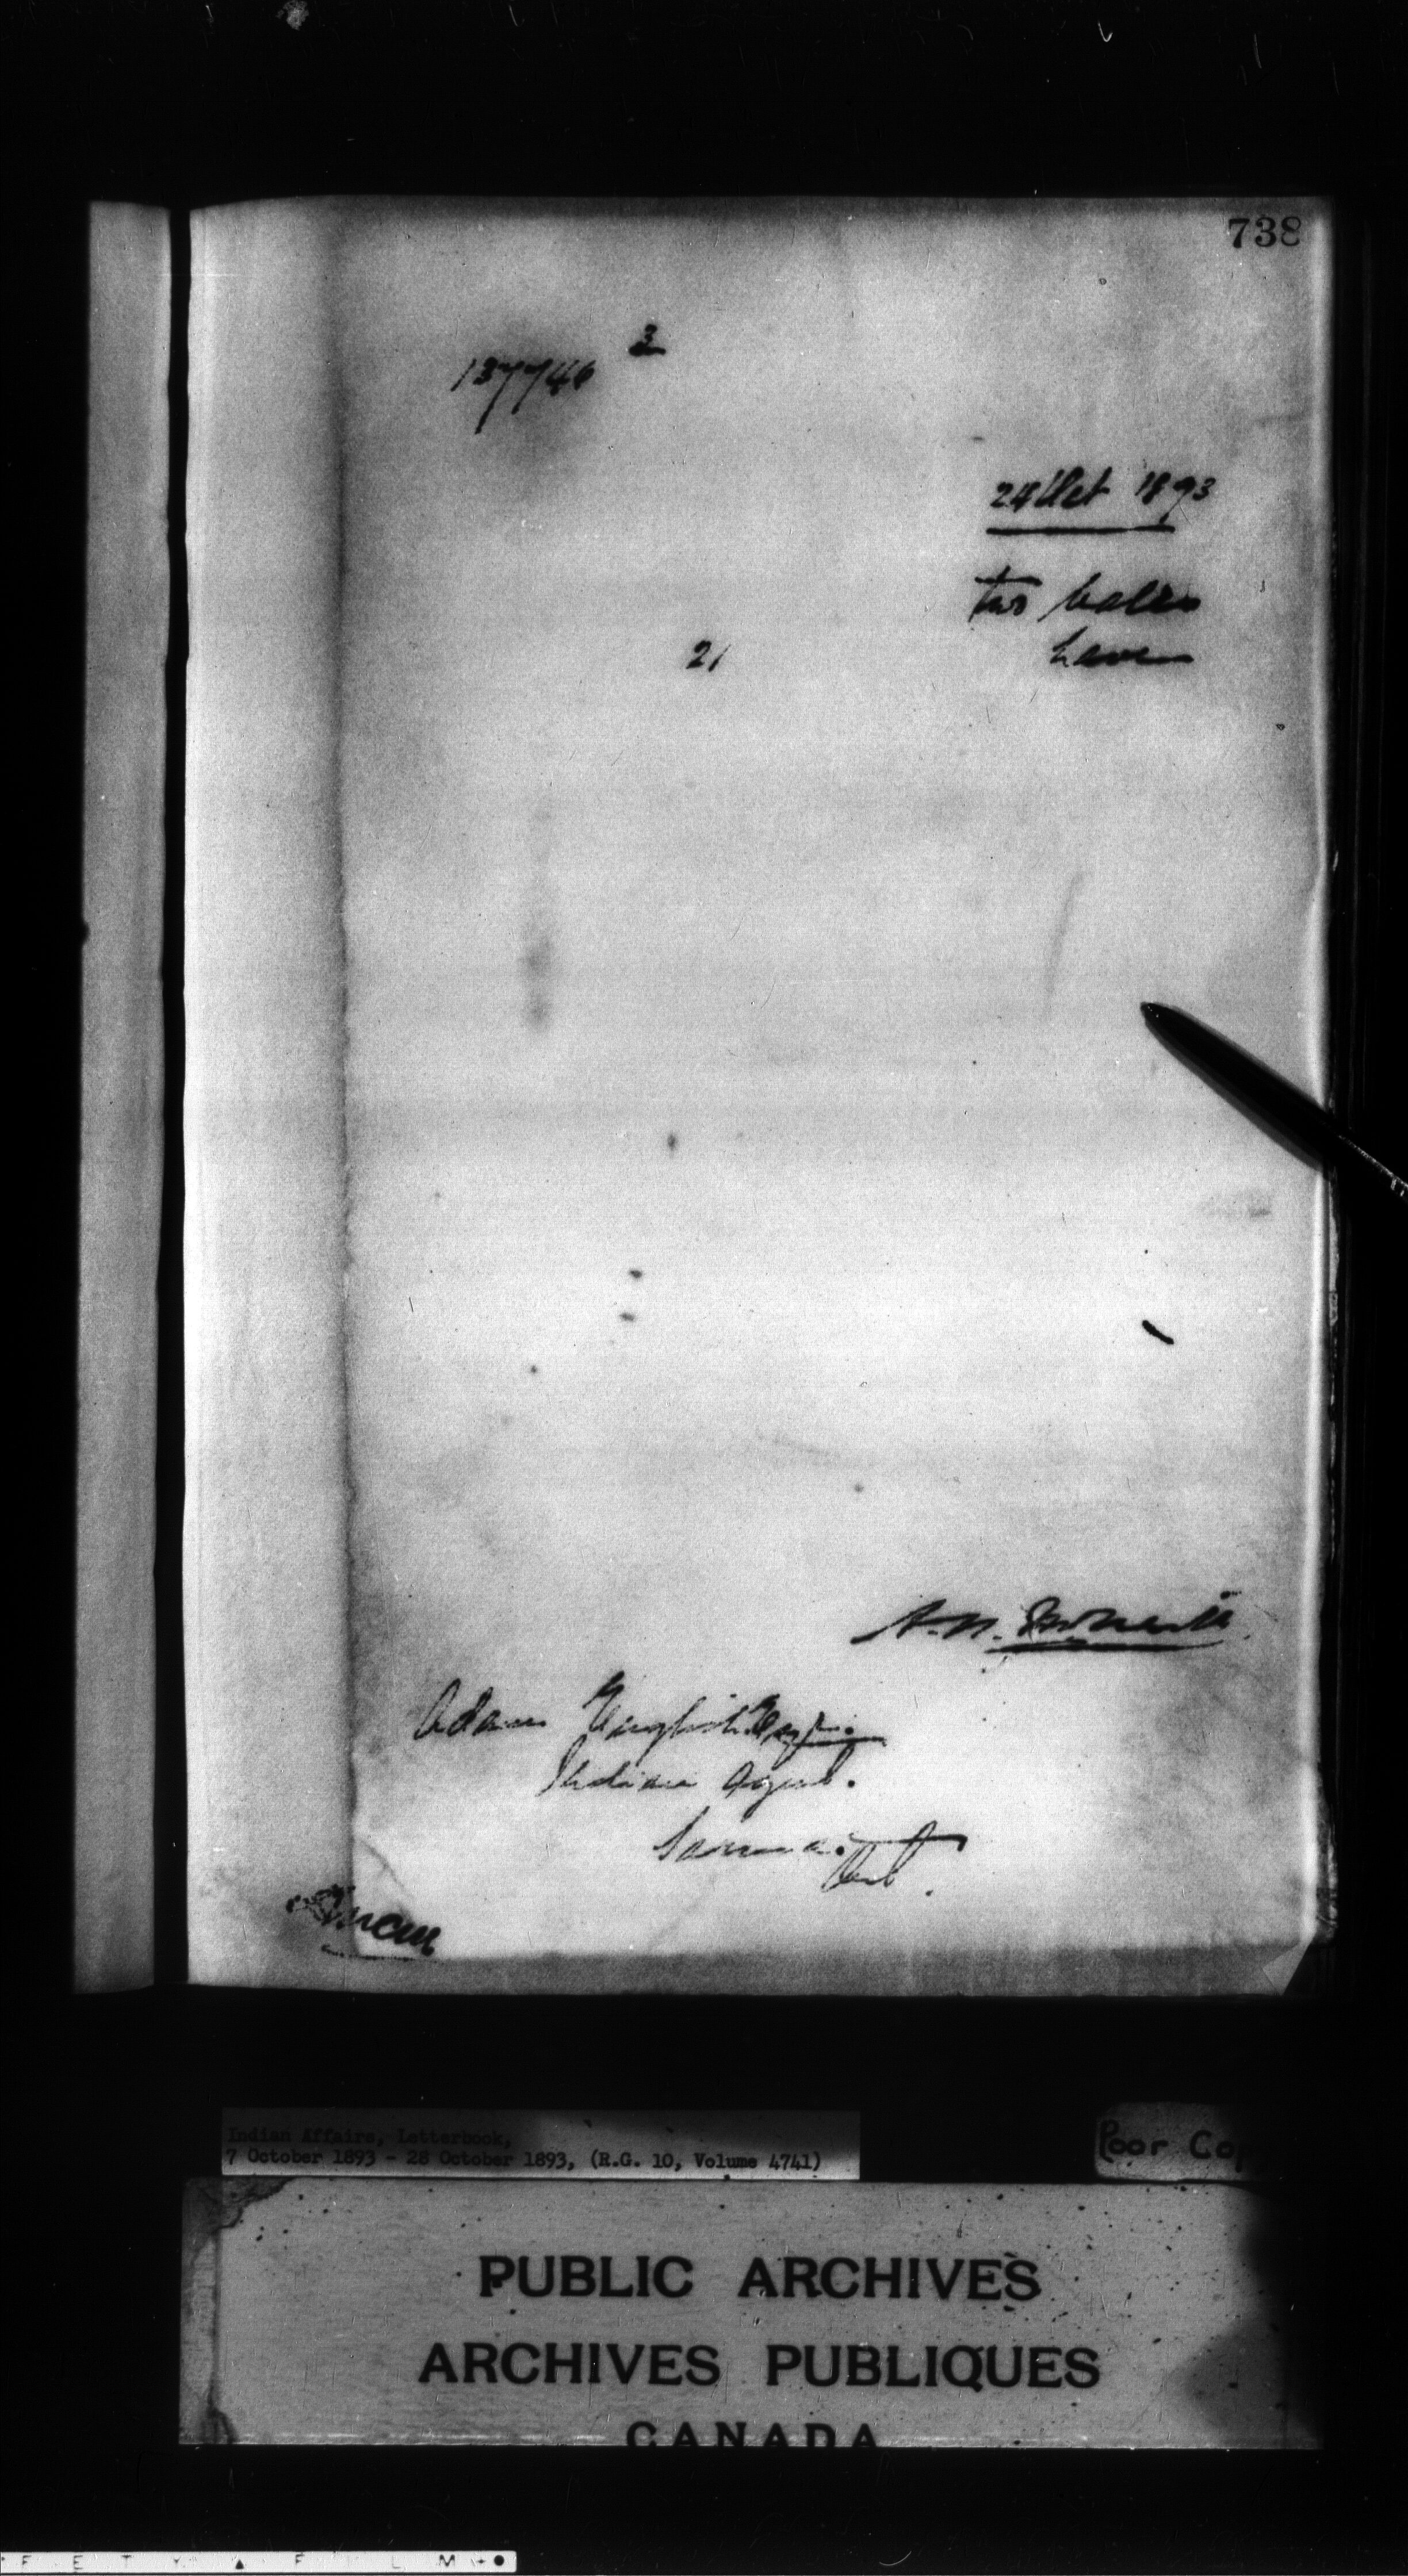 738
3
137746
24 Oct 1893
two bales
21 have
A. N. McNeill
Adam English Esq.
Indian Agent.
Sarnia. Ont.
Indian Affairs, Letterbook,
7 October 1893 - 28 October 1893, (R.G. 10, Volume 4741)
Poor Cop
PUBLIC ARCHIVES
ARCHIVES PUBLIQUES
CANADA
F E T Y ▲ F I L M